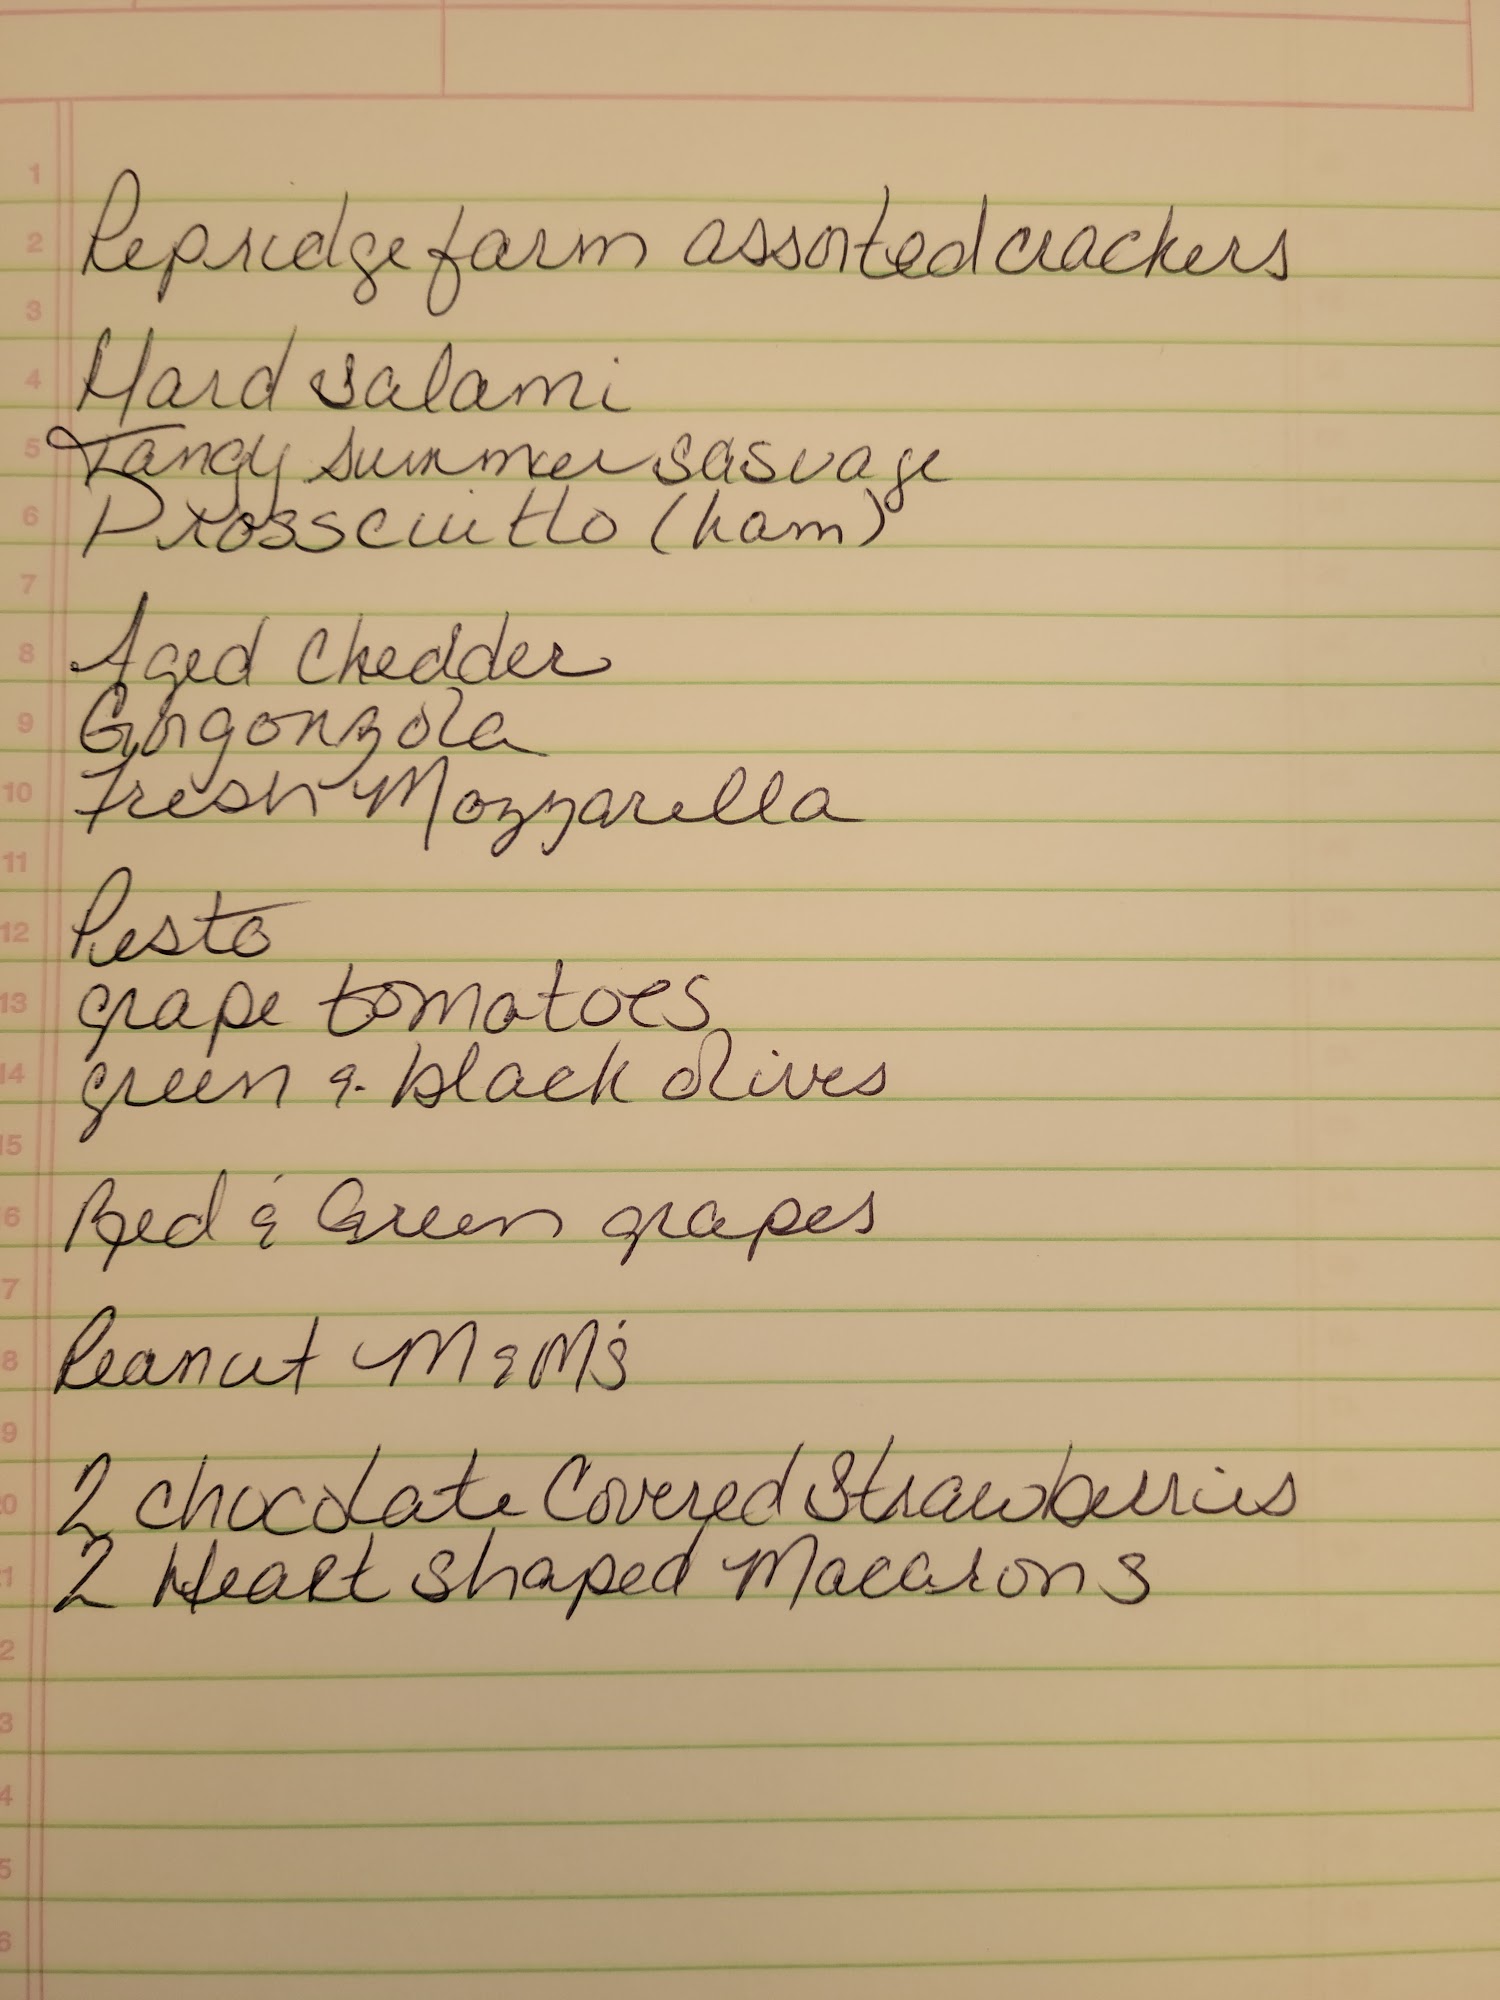 Pepridge farm assorted crackers
Hard salami
Tangy summer sasuage
Prosscuitto (ham)
Aged Chedder
Gorgonzola
Fresh Mozzarella
Pesto
grape tomatoes
green & black olives
Red & Green grapes
Peanut M&M's
2 chocolate Covered Strawberries
2 Heart Shaped Macarons